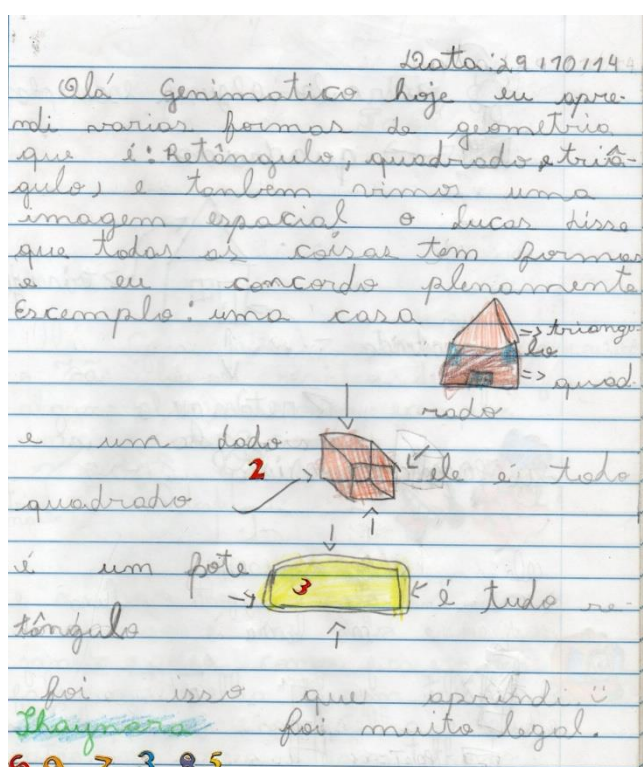 Data: 29/10/14
Olá Genimatico hoje eu apre-
ndi varias formas de geometria
que é: Retângulo, quadrado, e triâ-
gulo, e tanbem vimos uma
imagem espacial o Lucas disse
que todas as coisas tem formas
e eu concordo plenamente
Escemplo: uma casa
=> triangu
lo
=> quad
rado
e um dado
2
ele é todo
quadrado
é um pote
3
é tudo re-
tângulo
foi isso que aprendi
Thaynara foi muito legal.
6 0 7 3 8 5